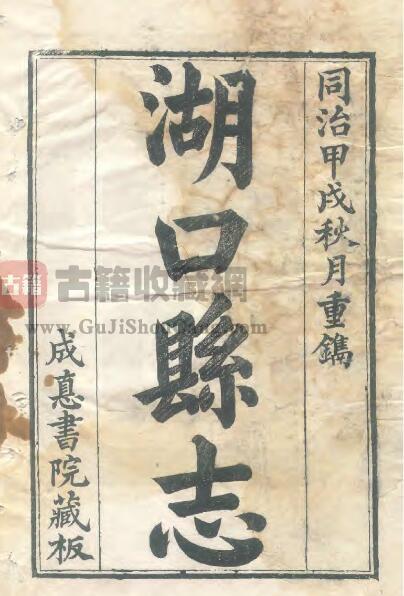 同治甲戌秋月重鐫
湖口縣志
成悳書院藏板
古籍
古籍收藏網
www.GuJiShouCang.com